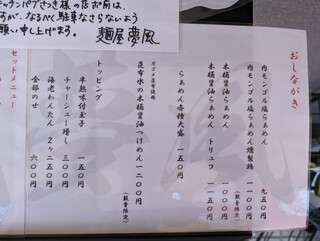 キッチンパブさつき様の店お前は、
すが、なるべく駐車なさらないよう
願い申し上げます。 麺屋 夢風
おしながき
内モンゴル塩らぁめん 九五〇円
内モンゴル塩らぁめん燻製鶏
本桶醤油らぁめん 一〇〇〇円
本桶醤油らぁめん トリュフ 一一五〇円
らぁめん各種大盛 一五〇円
昆布水の本桶醤油つけめん 一二〇〇円
(数量限定)
トッピング
半熟味付玉子 一五〇円
チャーシュー増し 三〇〇円
海老わんたん 2ヶ 二五〇円
全部のせ 六〇〇円
セットメニュー